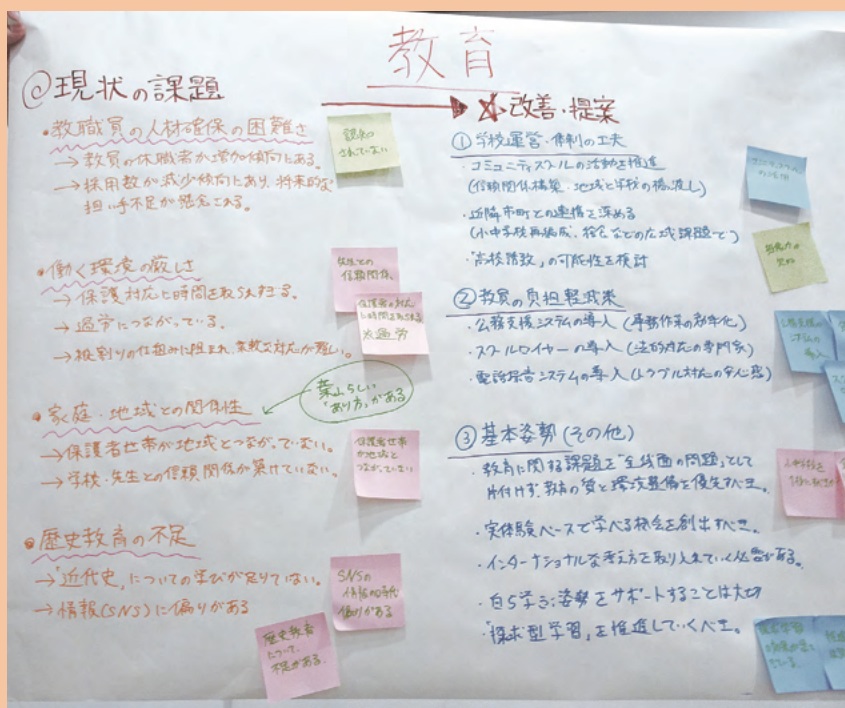 教育
◎現状の課題
・教職員の人材確保の困難さ
→ 教員の休職者が増加傾向にある。
→ 採用数が減少傾向にあり、将来的な
担い手不足が懸念される。
認知
されていない
・働く環境の厳しさ
→ 保護対応に時間を取られすぎる。
→ 過労につながっている。
→ 縦割りの仕組みに阻まれ、柔軟な対応が難しい。
先生との
信頼関係、
保護者の対応
に時間を取られる
過労
葉山らしい
「あり方」がある
・家庭・地域との関係性
→保護者世帯が地域とつながっていない。
→学校・先生との信頼関係が築けていない。
保護者世帯
が地域と
つながっていない
・歴史教育の不足
→「近代史」についての学びが足りていない。
→情報(SNS)に偏りがある
SNSの
偏りがある
歴史教育
について、
不足がある。
改善・提案
① 学校運営・体制の工夫
・コミュニティスクールの活動を推進
(信頼関係構築・地域と学校の橋渡し)
・近隣市町との連携を深める
(小中学校再編成、給食などの広域課題で)
・「高校誘致」の可能性を検討
② 教員の負担軽減策
・公務支援システムの導入 (事務作業の効率化)
・スクールロイヤーの導入 (法的対応の専門家)
・電話録音システムの導入 (トラブル対応の安心感)
公務支援の
導入
③ 基本姿勢 (その他)
・教育に関する課題を"金銭面の問題"として
片付けず、教育の質と環境整備を優先すべき。
・実体験ベースで学べる機会を創出すべき。
・インターナショナルな考え方を取り入れていく必要がある。
・自ら学ぶ姿勢をサポートすることは大切
・「探求型学習」を推進していくべき。